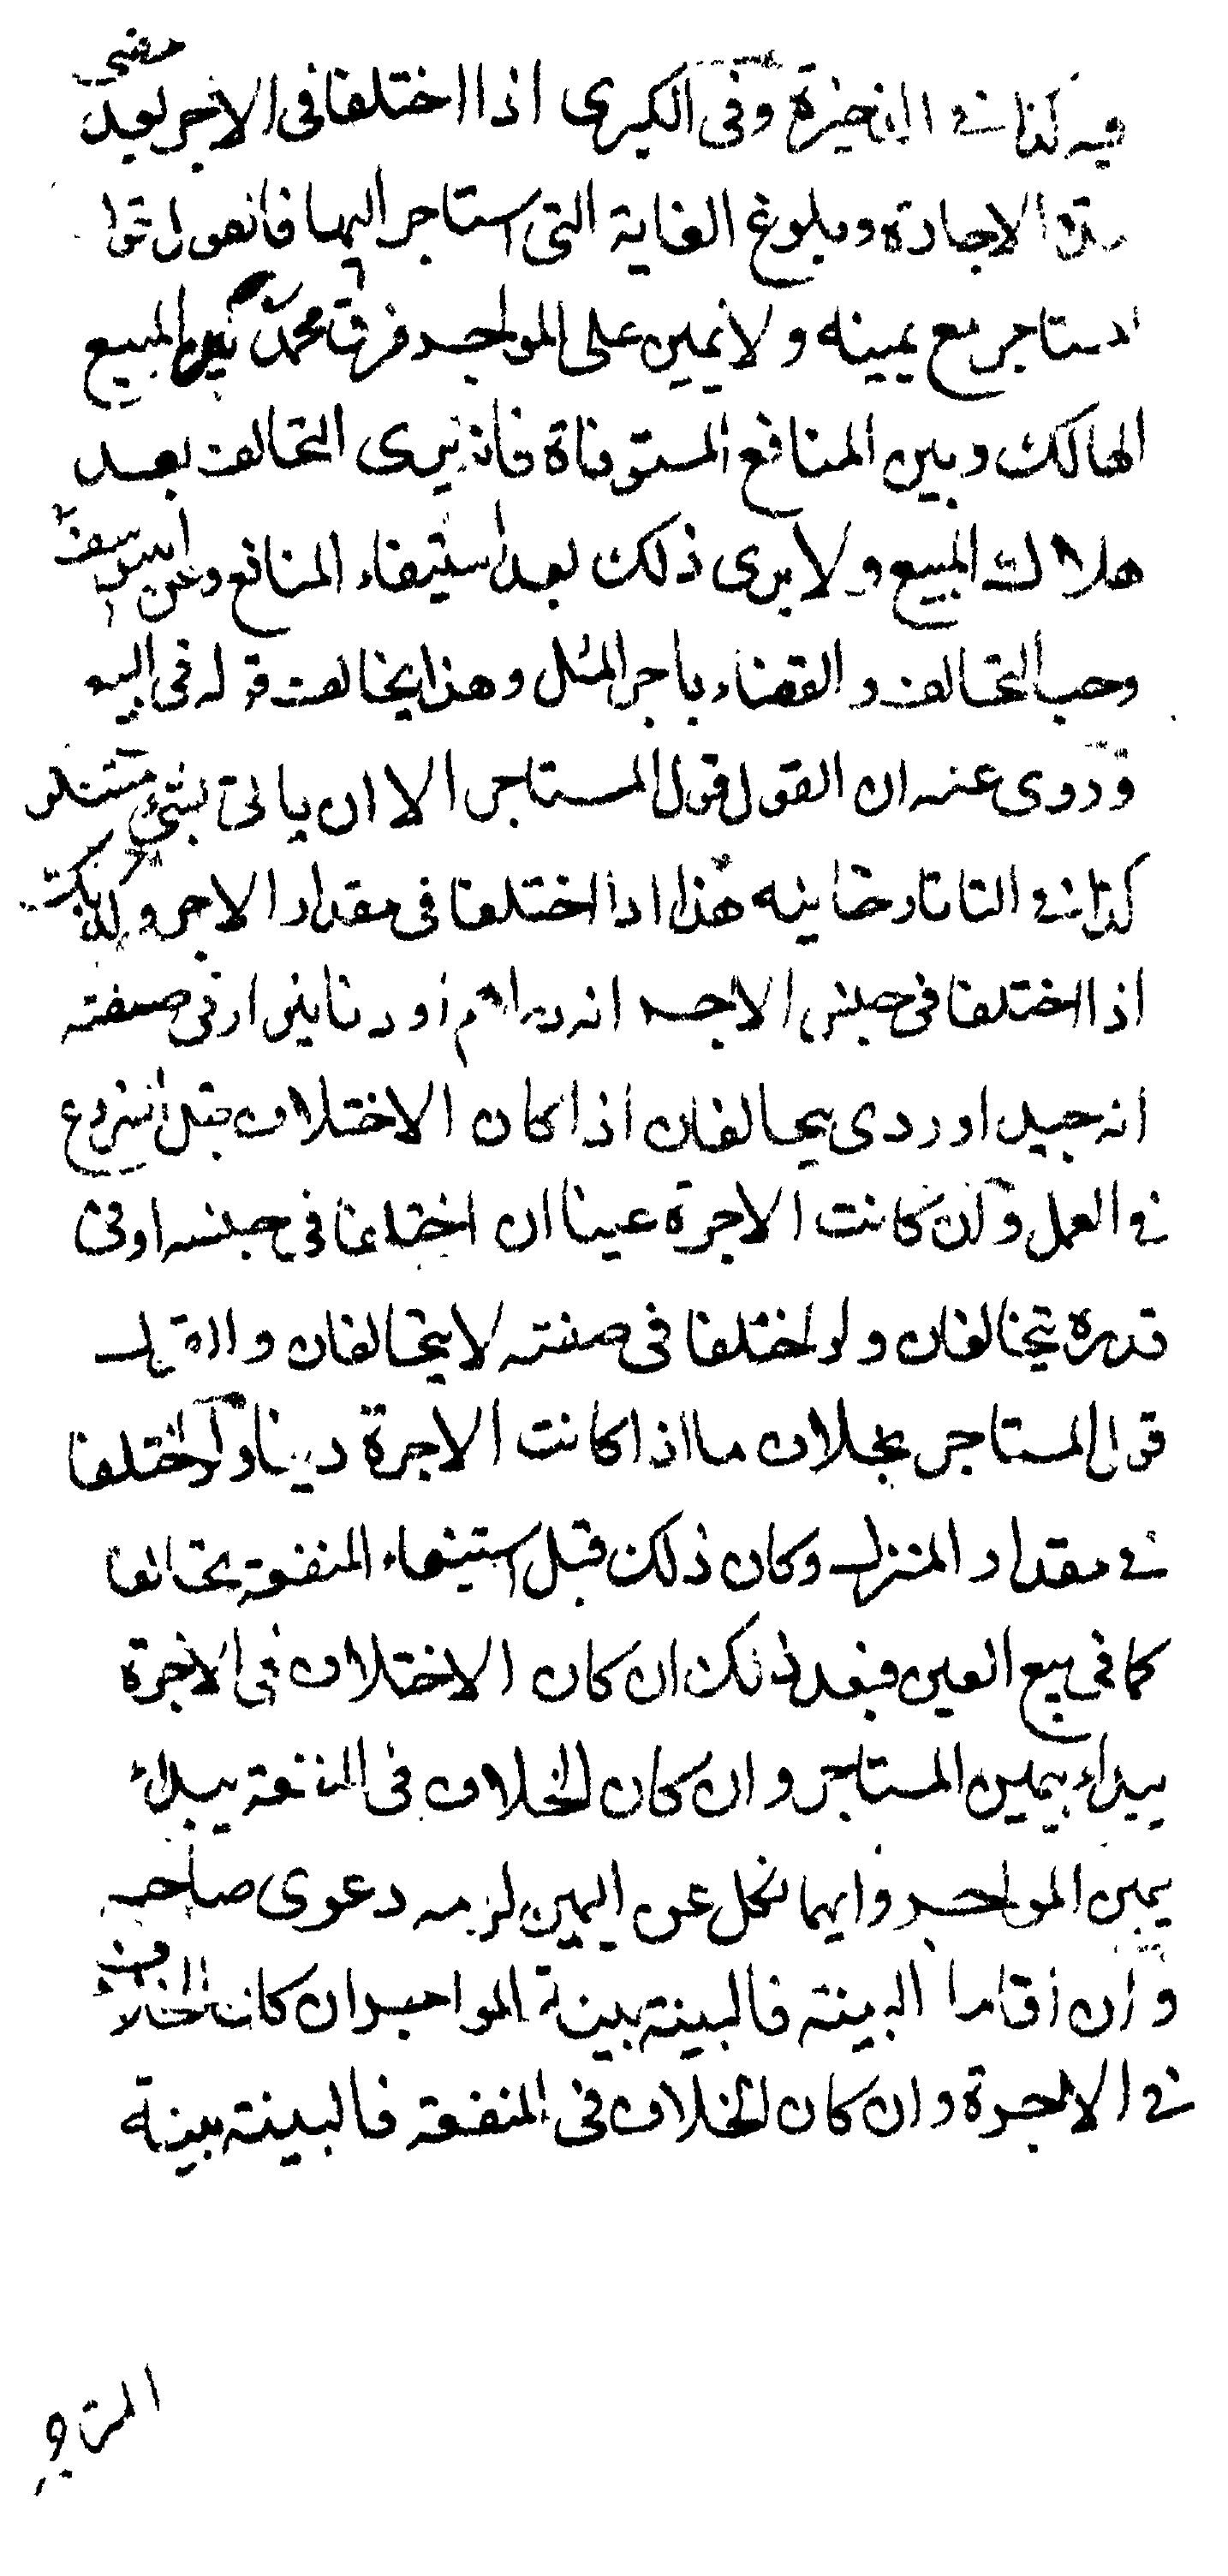 فيه كذا في الذخيرة وفى الكبرى اذا اختلفا فى الاجر بعد مضى
مدة الاجارة وبلوغ الغاية التى استاجر اليها فالقول قول
المستاجر مع يمينه ولا يمين على المواجر فرق محمد بين المبيع
الهالك وبين المنافع المستوفاة فانه يرى التحالف بعد
هلاك المبيع ولا يرى ذلك بعد استيفاء المنافع وعن ابى يوسف
وجب التحالف والقضاء باجر المثل وهذا يخالف قوله فى البيع
وروى عنه ان القول قول المستاجر الا ان ياتى بشئ مستنكر
كذا في التاتارخانيه هذا اذا اختلفا فى مقدار الاجر وكذلك
اذا اختلفا فى جنس الاجر انه دراهم او دنانير او فى صفته
انه جيد او ردى يتحالفان اذا كان الاختلاف قبل الشروع
في العمل وان كانت الاجرة عينا ان اختلفا فى جنسه او فى
قدره يتحالفان ولو اختلفا فى صفته لا يتحالفان والقول
قول المستاجر بخلاف ما اذا كانت الاجرة دينا ولو اختلفا
في مقدار المنزل وكان ذلك قبل استيفاء المنفعة تحالفا
كما فى بيع العين فبعد ذلك ان كان الاختلاف فى الاجرة
يبداء بيمين المستاجر وان كان الخلاف فى المنفعة يبداء
يمين المواجر وايهما نكل عن اليمين لزمه دعوى صاحبه
وان اقاما البينة فالبينة بينة المواجر ان كان الخلاف
في الاجرة وان كان الخلاف فى المنفعة فالبينة بينة